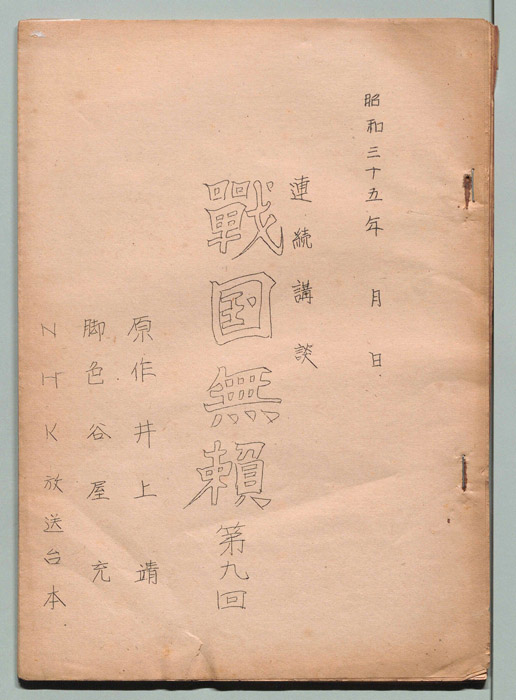 昭和三十五年　月　日
連続講談
戰国無賴 第九回
原作 井上 靖
脚色 谷屋 充
NHK放送台本